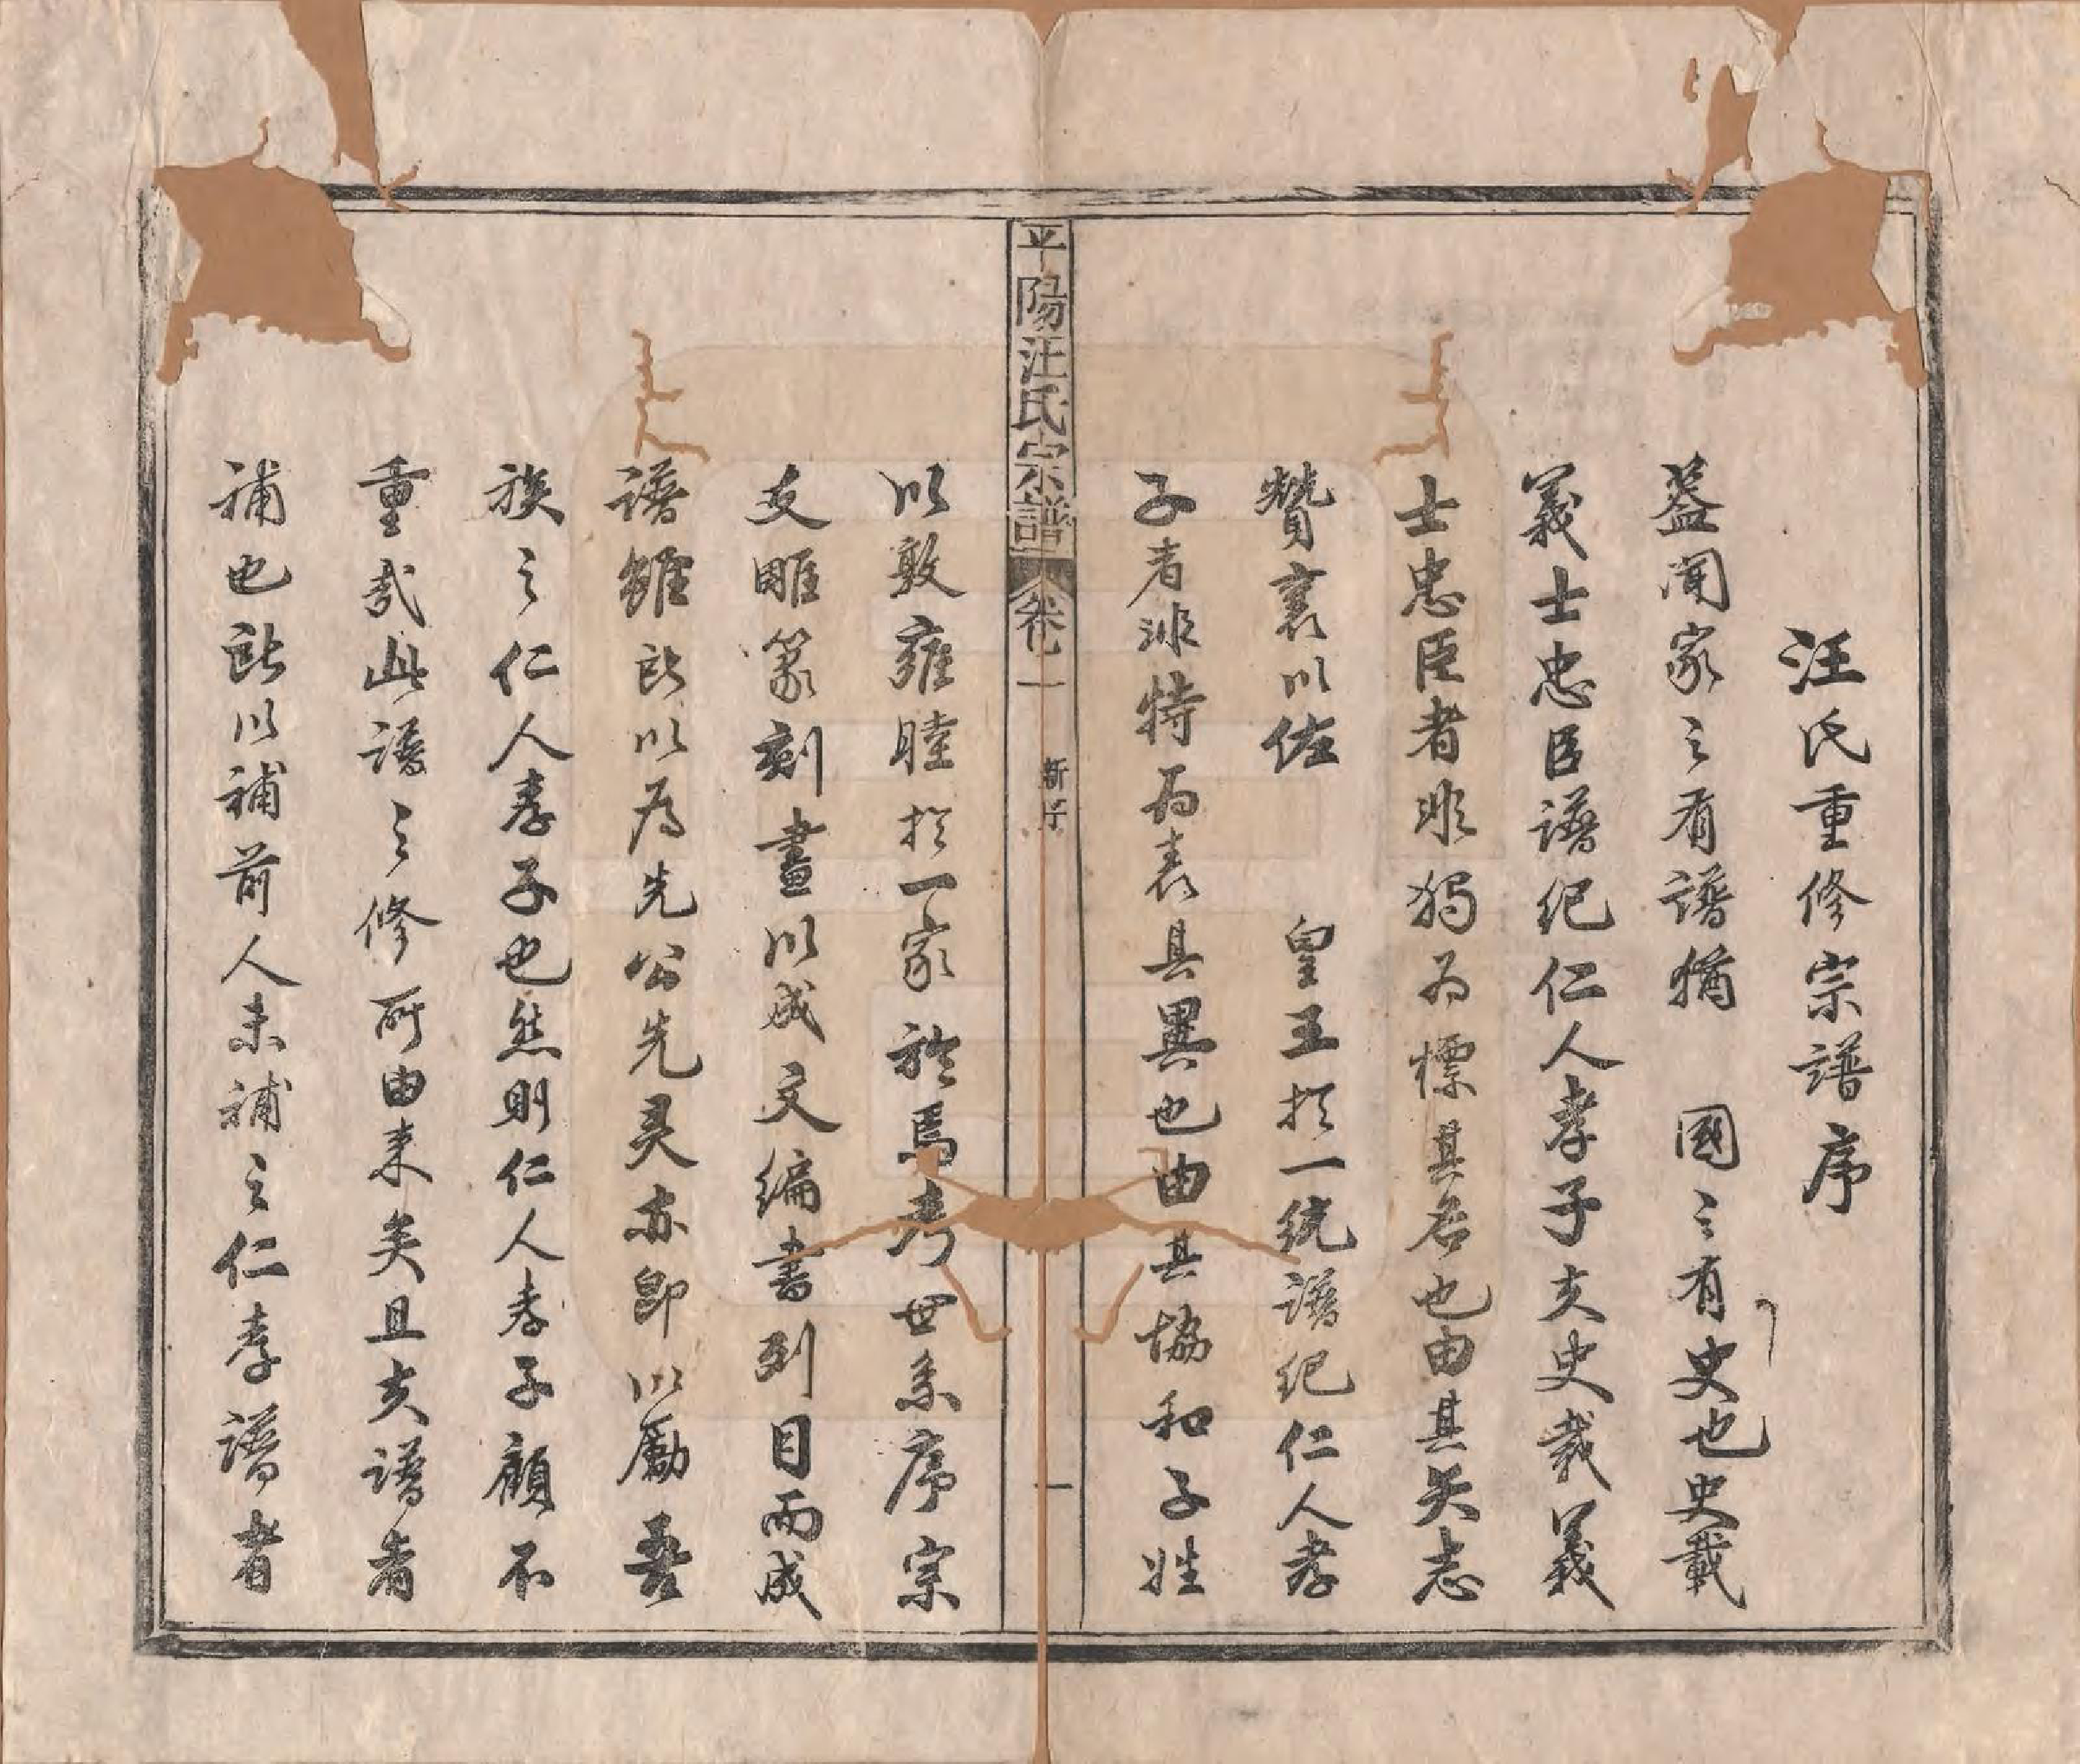 汪氏重修宗譜序
蓋聞家之有譜猶 國之有史也史載
義士忠臣譜纪仁人孝子夫史载義
士忠臣者非獨为標其名也由其矢志
贊襄以佐 皇王扵一统譜纪仁人孝
子者非特为表其異也由其協和子姓
平陽汪氏宗譜 卷一 新序 一
以敦雍睦扵一家於焉考世系序宗
支雕篆刻畫以成文编書列目而成
譜雖所以为先公先灵亦即以勵吾
族之仁人孝子也然则仁人孝子顧不
重哉此譜之修所由来矣且夫譜者
補也所以補前人未補之仁孝譜者